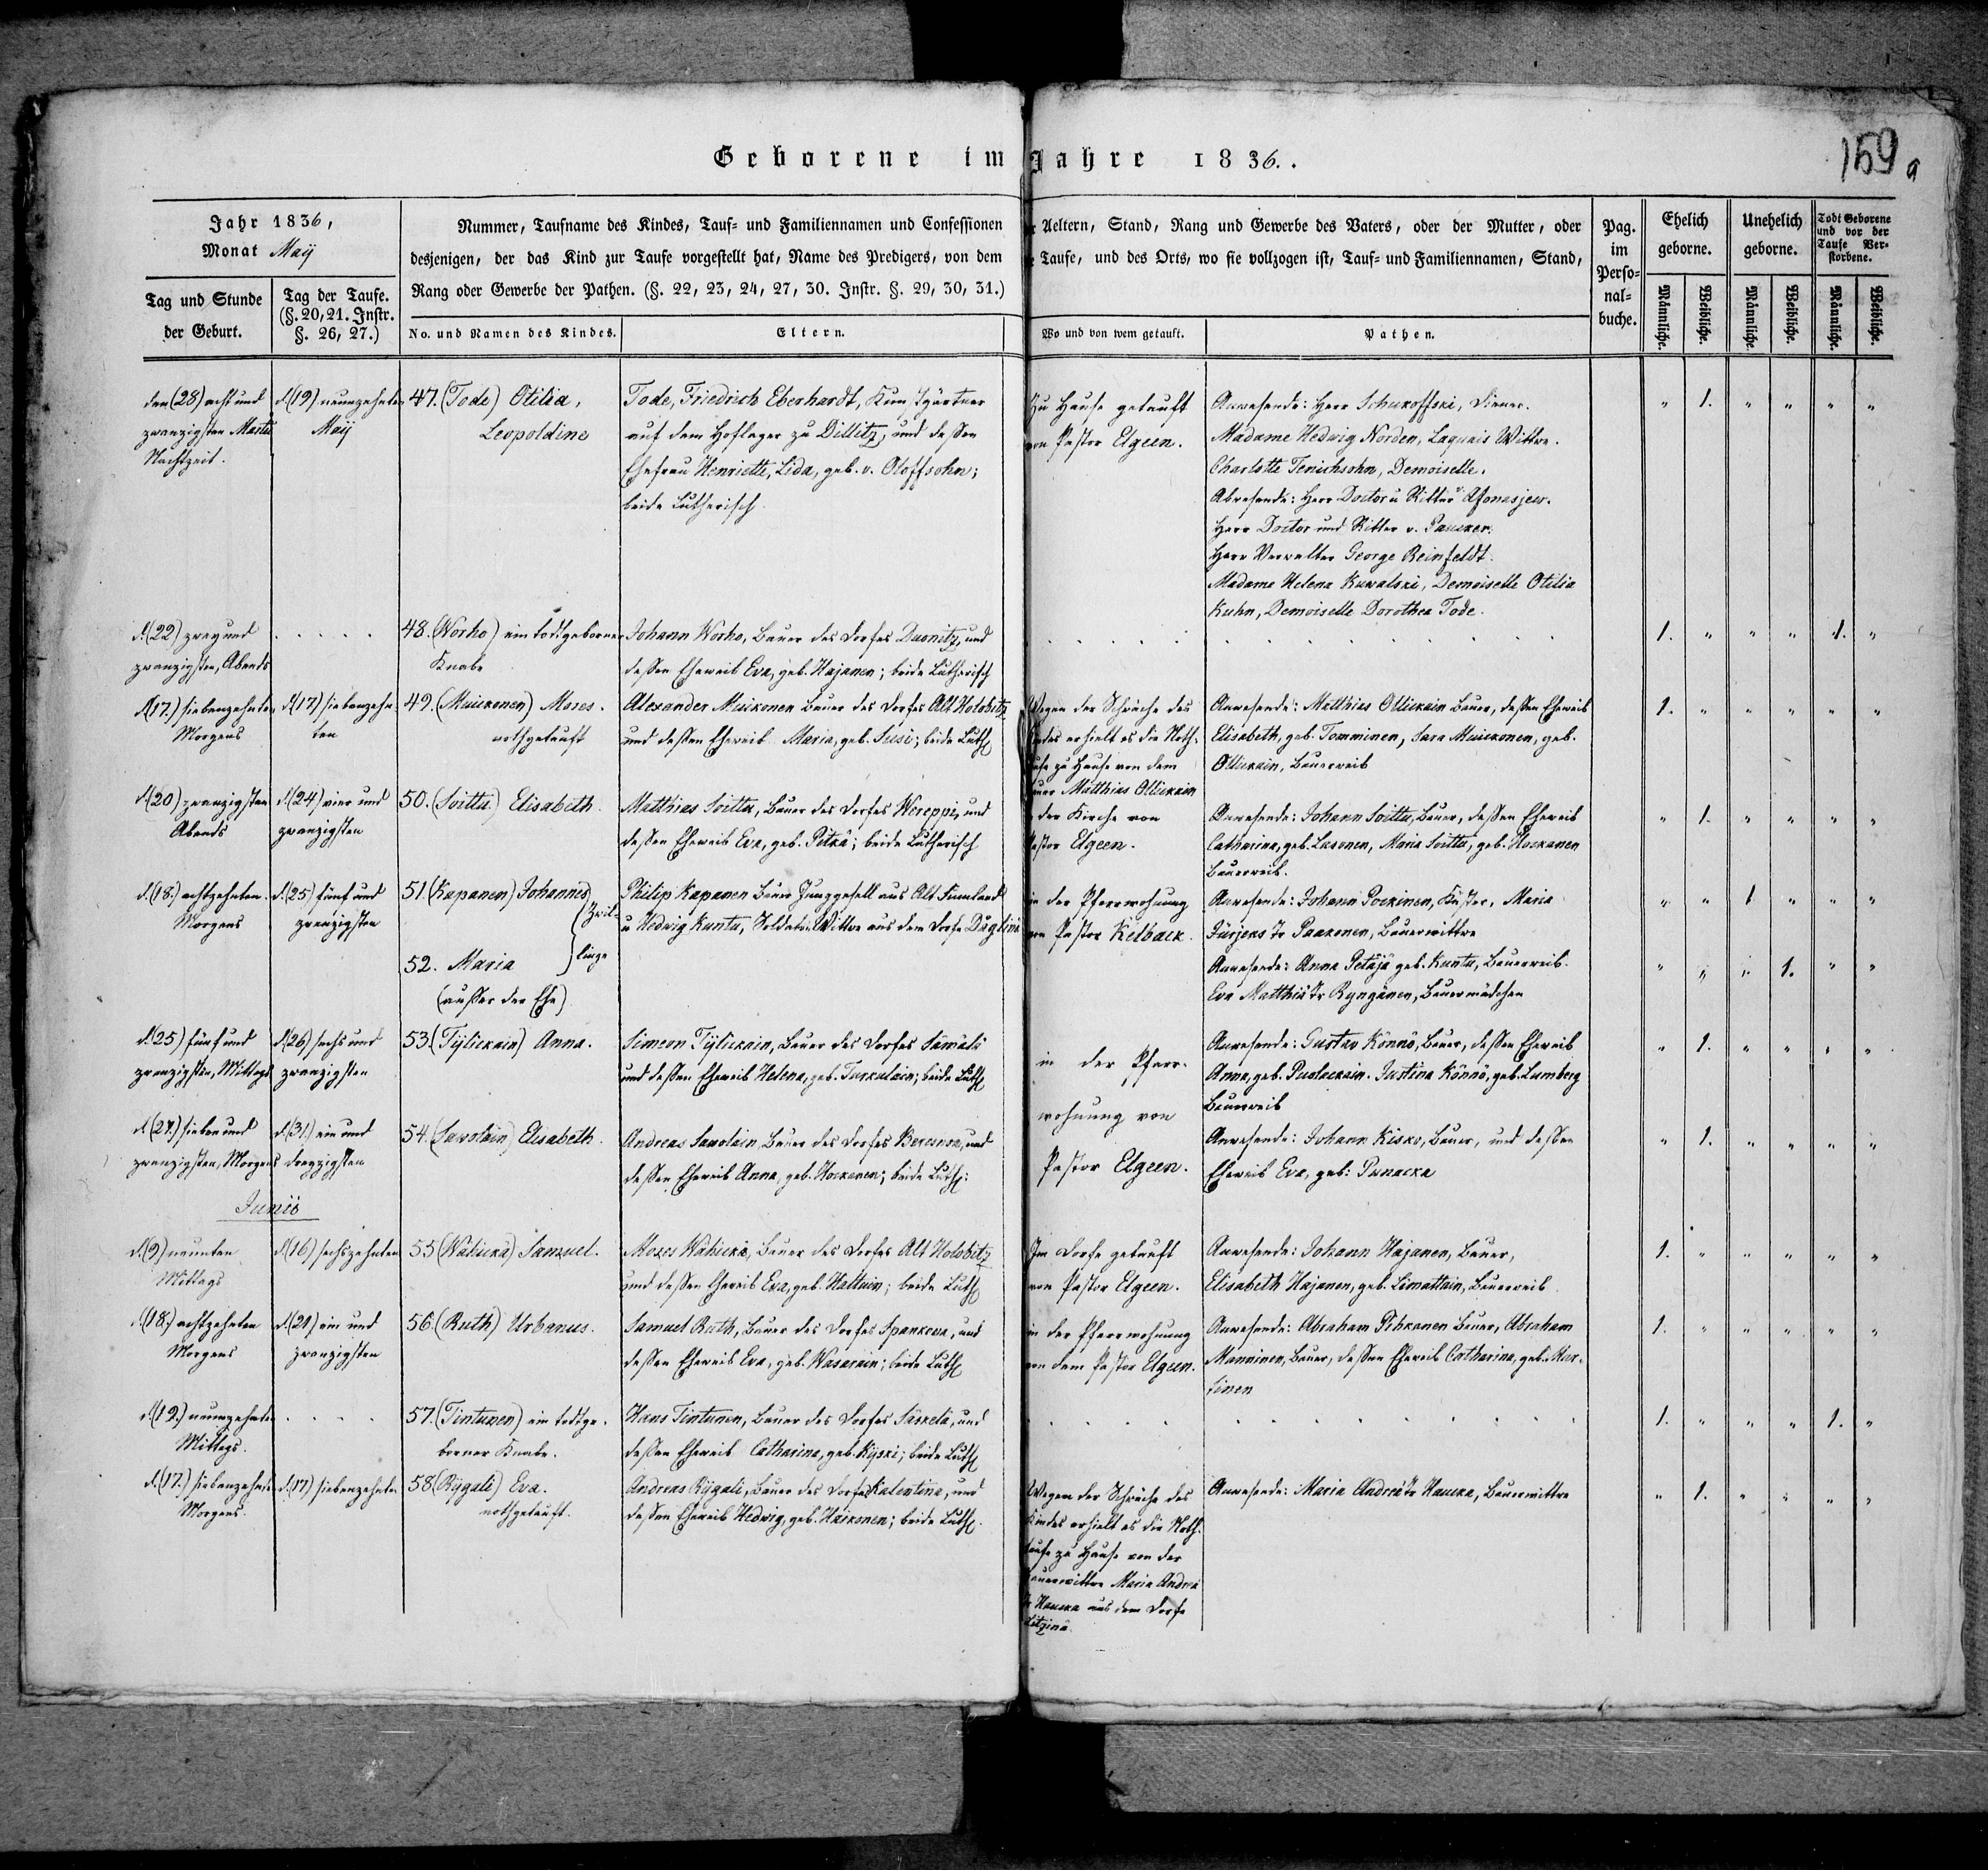 Geborene im Jahre 1836..
159 a
Jahr 1836,
Monat Maÿ
Tag und Stunde
der Geburt.
Tag der Taufe.
(§. 20, 21. Instr.
§. 26, 27.)
Nummer, Taufname des Kindes, Tauf- und Familiennamen und Confessionen
desjenigen, der das Kind zur Taufe vorgestellt hat, Name des Predigers, von dem
Rang oder Gewerbe der Pathen. (§. 22, 23, 24, 27, 30. Instr. §. 29, 30, 31.)
No. und Namen des Kindes.
Eltern.
Aeltern, Stand, Rang und Gewerbe des Vaters, oder der Mutter, oder
Taufe, und des Orts, wo sie vollzogen ist, Tauf- und Familiennamen, Stand,
Wo und von wem getauft.
Pathen.
Pag.
im
Perso-
nal-
buche.
Ehelich
geborne.
Unehelich
geborne.
Todt Geborene
und vor der
Taufe Ver-
storbene.
Männliche.
Weibliche.
Männliche.
Weibliche.
Männliche.
Weibliche.
den (28) acht und
zwanzigsten Martii
Nachtzeit.
d. (19) neunzehnten
Maÿ
47. (Tode) Otilia,
Leopoldine
Tode, Friedrich Eberhardt, Kunstgärtner
auf dem Hoflager zu Dillitz, und deßen
Ehefrau Henriette, Lida, geb. v. Oloffsohn;
beide Lutherisch.
Zu Hause getauft
von Pastor Elgeen.
Anwesende: Herr Schukoffski, Diener.
Madame Hedwig Norden, Laquais Wittwe.
Charlotte Tenischsohn, Demoiselle.
Abwesende: Herr Doctor u Ritter v. Afonasjew.
Herr Doctor und Ritter v. Paucker.
Herr Verwalter George Reinfeldt.
Madame Helena Kuwalski, Demoiselle Otilia
Kuhn, Demoiselle Dorothea Tode.
" 1. " " " "
d. (22) zwey und
zwanzigsten, Abends
48. (Worho) ein todtgeborner
Knabe
Johann Worho, Bauer des Dorfes Duonitz, und
deßen Eheweib Eva, geb. Hajanen; beide Lutherisch
1. " " " 1. "
d. (17.) siebenzehnten
Morgens
d. (17) siebenzehn-
ten
49. (Muikonen) Moses.
nothgetauft
Alexander Muikonen Bauer des Dorfes Alt Holobitz
und deßen Eheweib Maria, geb. Susi; beide Luth.
Wegen der Schwäche des
Kindes erhielt es die Noth-
taufe zu Hause von dem
Bauer Matthias Ollikain
Anwesende: Matthias Ollikain Bauer, deßen Eheweib
Elisabeth, geb. Tomminen, Sara Muikonen, geb.
Ollikain, Bauerweib
1. " " " " "
d. (20) zwanzigsten
Abends
d. (24) vier und
zwanzigsten
50. (Soittu) Elisabeth.
Matthias Soittu, Bauer des Dorfes Wereppi, und
deßen Eheweib Eva, geb. Petkä; beide Lutherisch
der Kirche von
Pastor Elgeen.
Anwesende: Johann Soittu, Bauer, deßen Eheweib
Catharina, geb. Lasonen, Maria Soittu, geb. Hockanen
Bauerweib.
" 1. " " " "
d. (18.) achtzehnten
Morgens
d. (25) fünf und
zwanzigsten
51. (Kapanen) Johannes
Zwil-
linge
52. Maria
(außer der Ehe)
Philip Kapanen Bauer Junggesell aus Alt Finnland
u Hedwig Kuntu, Soldaten Wittwe aus dem Dorfe Däglinä
in der Pfarrwohnung
von Pastor Kelback.
Anwesende: Johann Pockinen, Küster, Maria
Jürjens Tr Paakonen, Bauerwittwe
Anwesende: Anna Petäjä geb. Kuntu, Bauerweib.
Eva Matthiä Tr Ryngänen, Bauermädchen
" " 1 " " "
" " " 1. " "
d. (25) fünf und
zwanzigsten, Mittags
d. (26) sechs und
zwanzigsten
53. (Tÿlickain) Anna.
Simeon Tÿlickain, Bauer des Dorfes Sämälä
und deßen Eheweib Helena, geb. Turkulain; beide Luth.
in der Pfarr-
wohnung von
Pastor Elgeen.
Anwesende: Gustav Könnö, Bauer, deßen Eheweib
Anna, geb. Puolackain. Justina Könnö, geb. Lumberg
Bauerweib
" 1. " " " "
d. (27.) sieben und
zwanzigsten, Morgens
d. (31.) ein und
dreyzigsten
54. (Sawolain) Elisabeth.
Andreas Sawolain, Bauer des Dorfes Beresnoa, und
deßen Eheweib Anna, geb. Hockanen; beide Luth:
Anwesende: Johann Kisko, Bauer, und deßen
Eheweib Eva, geb: Punacka
" 1. " " " "
Junii
d. (9) neunten
Mittags
d. (16) sechszehnten
55 (Walicka) Samuel.
Moses Walicka, Bauer des Dorfes Alt Holobitz
und deßen Eheweib Eva, geb. Haltuin; beide Luth.
Im Dorfe getauft
von Pastor Elgeen.
Anwesende: Johann Hajanen, Bauer,
Elisabeth Hajanen, geb. Limattain, Bauerweib.
1. " " " " "
d. (18.) achtzehnten
Morgens
d. (21) ein und
zwanzigsten
56. (Ruth) Urbanus.
Samuel Ruth, Bauer des Dorfes Spankowa, und
deßen Eheweib Eva, geb. Wasarain; beide Luth.
in der Pfarrwohnung
von dem Pastor Elgeen.
Anwesende: Abraham Pihkanen Bauer, Abraham
Manninen, Bauer, deßen Eheweib Catharina, geb. Mar-
tinen
1. " " " " "
d. (19.) neunzehnten
Mittags.
57. (Tintunen) ein todtge-
borner Knabe.
Hans Tintunen, Bauer des Dorfes Säskelä, und
deßen Eheweib Catharina, geb. Kÿski; beide Luth.
1. " " " 1. "
d. (17.) siebenzehnten
Morgens.
d. (17) siebenzehnten
58. (Rÿgali) Eva.
nothgetauft.
Andreas Rÿgali, Bauer des Dorfes Kalentina, und
deßen Eheweib Hedwig, geb. Haikonen; beide Luth.
Wegen der Schwäche des
Kindes erhielt es die Noth-
taufe zu Hause von der
Bauerwittwe Maria Andreä
Tr Haucka aus dem Dorfe
Anwesende: Maria Andreä Tr Haucka, Bauerwittwe
" 1. " " " "